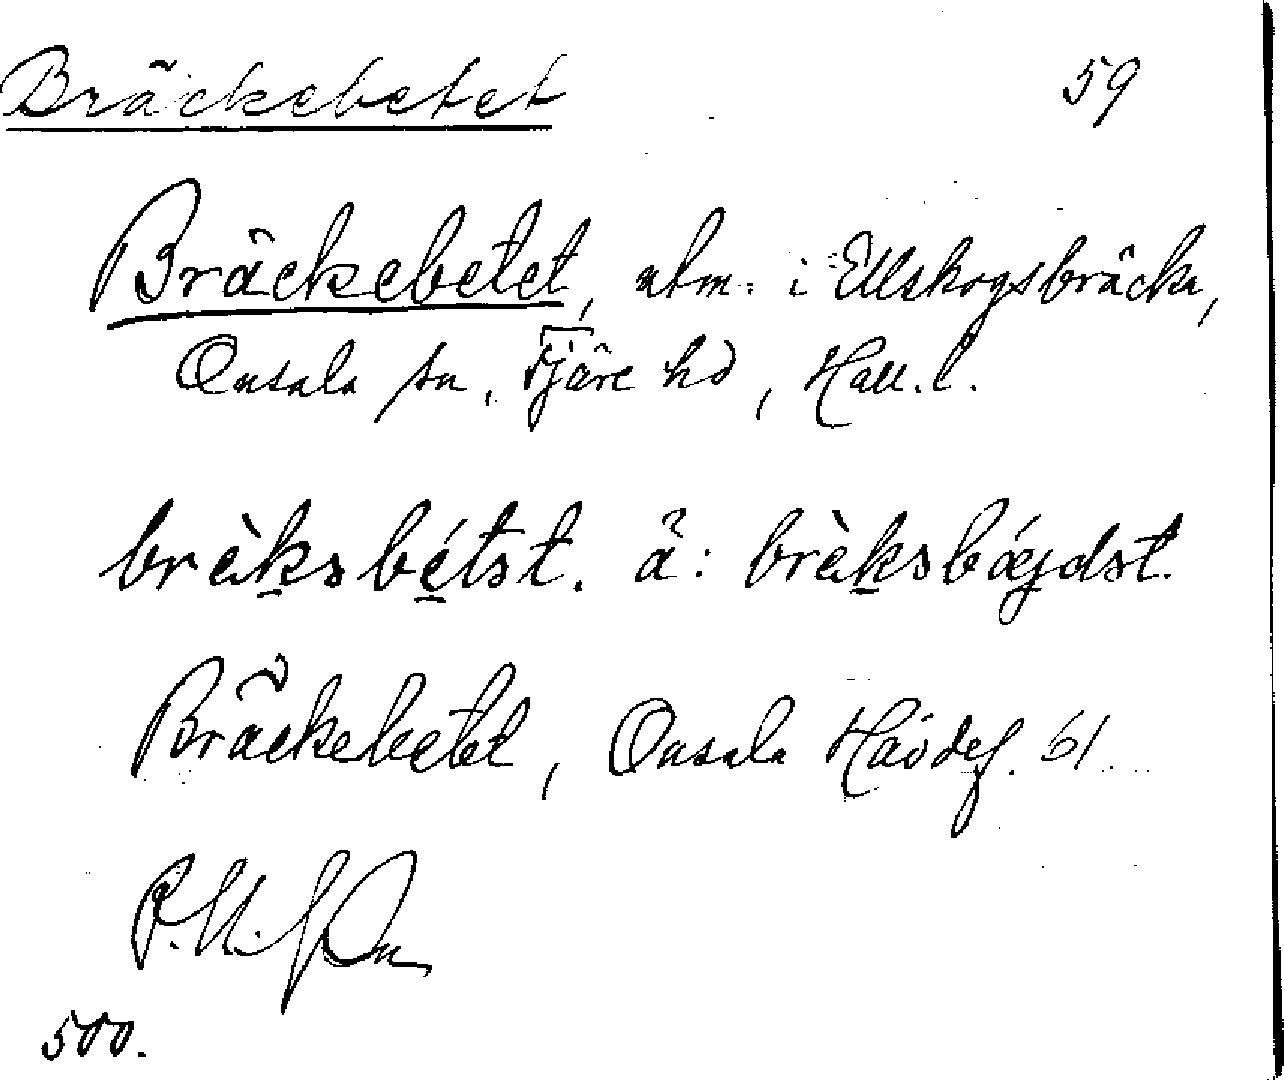 Bräckebetet 59
Bräckebetet, utm. i Ellskogsbräcka,
Onsala sn, Fjäre hd, Hall. l.
brèksbétst. ä: brèksbǿjdst.
Bräckebetet, Onsala Hävdef. 61
500.